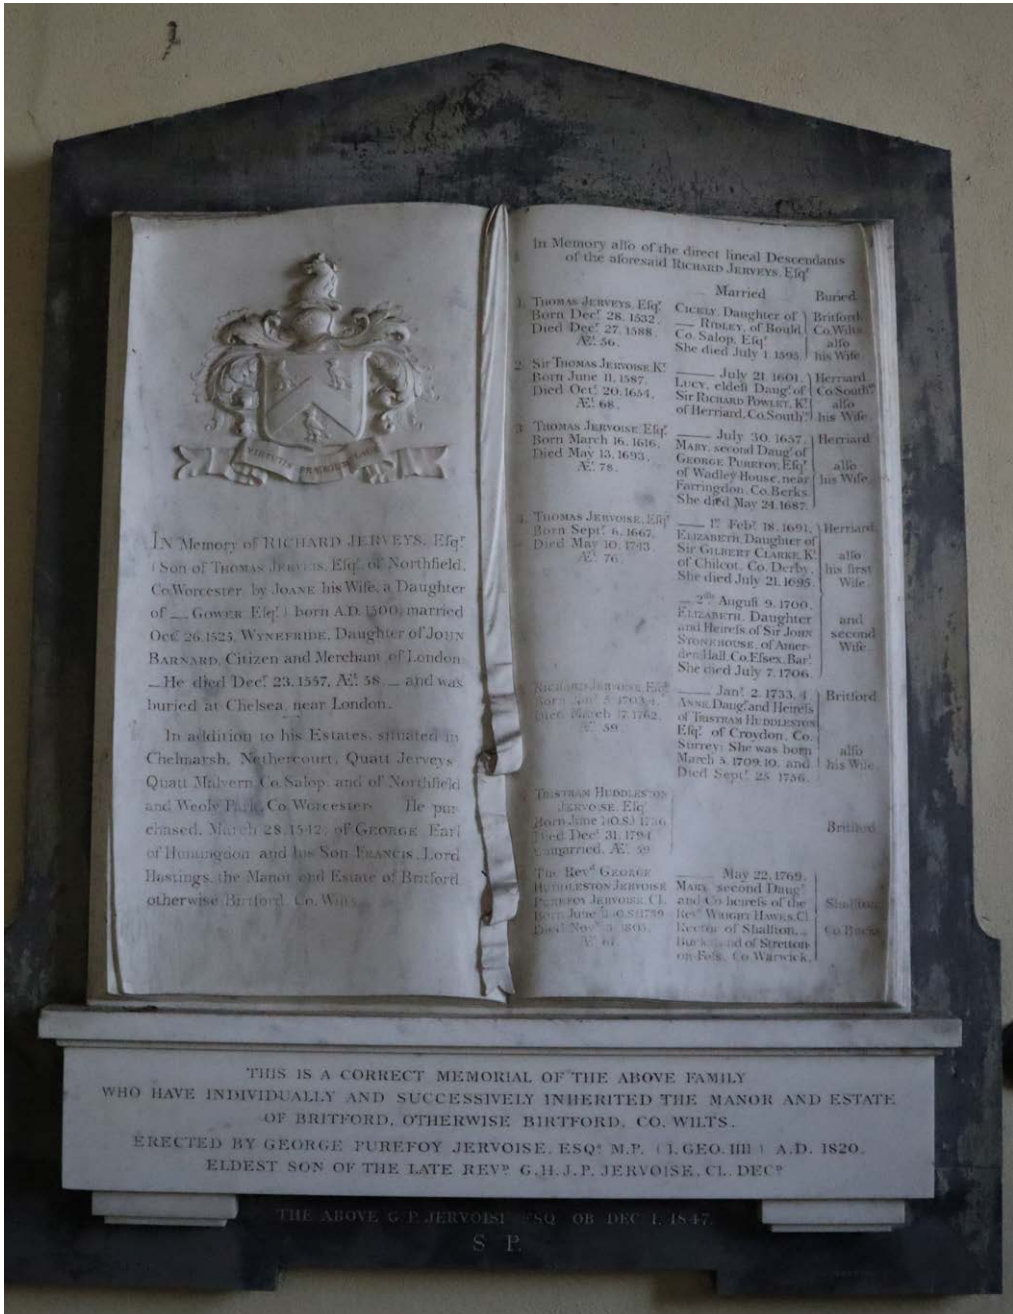 VIRTUTIS PRÆMIUM LAUS
IN Memory of RICHARD JERVEYS, Esqʳ
(Son of THOMAS JERVEIS, Esqʳ of Northfield,
Co. Worcester by JOANE his Wife, a Daughter
of — GOWER Esqʳ) born A.D. 1500, married
Octʳ 26. 1523, WYNEFRIDE, Daughter of JOHN
BARNARD, Citizen and Merchant of London
— He died Decʳ 23. 1557, Æᵗ 58 — and was
buried at Chelsea, near London.
In addition to his Estates, situated in
Chelmarsh, Nethercourt, Quatt Jerveys
Quatt Malvern, Co. Salop, and of Northfield
and Weoly Park, Co. Worcester He pur-
chased, March 28. 1542, of GEORGE, Earl
of Huntingdon and his Son FRANCIS, Lord
Hastings, the Manor and Estate of Britford
otherwise Birtford, Co. Wilts.
In Memory alſo of the direct lineal Descendants
of the aforesaid RICHARD JERVEYS, Eſqʳ
Married Buried
1. THOMAS JERVEYS, Eſqʳ
Born Decʳ 28. 1532.
Died Decʳ 27. 1588.
Æᵗ 56.
CICELY, Daughter of
— RIDLEY, of Bould
Co. Salop, Eſqʳ
She died July 1. 1595.
Britford
Co. Wilts
alſo
his Wife
2. Sir THOMAS JERVOISE Kᵗ
Born June 11. 1587.
Died Octʳ 20. 1654.
Æᵗ 68.
— July 21. 1601.
LUCY, eldeſt Daugʳ of
Sir RICHARD POWLET, Kᵗ
of Herriard, Co. Southⁿ
Herriard
Co. Southⁿ
alſo
his Wife
3. THOMAS JERVOISE, Eſqʳ
Born March 16. 1616.
Died May 13. 1693.
Æᵗ 78.
— July 30. 1657.
MARY, second Daugʳ of
GEORGE PUREFOY, Eſqʳ
of Wadley House, near
Farringdon, Co. Berks
She died May 24. 1687.
Herriard
alſo
his Wife
4. THOMAS JERVOISE, Eſqʳ
Born Septʳ 6. 1667.
Died May 10. 1743.
Æᵗ 76.
— 1ˢᵗ Febʸ 18. 1691,
ELIZABETH, Daughter of
Sir GILBERT CLARKE, Kᵗ
of Chilcot, Co. Derby,
She died July 21. 1695.
Herriard
alſo
his first
Wife
— 2ᵈˡʸ Auguſt 9. 1700.
ELIZABETH, Daughter
and Heireſs of Sir JOHN
STONEHOUSE, of Amer-
den Hall, Co. Eſsex, Barᵗ
She died July 7. 1706.
and
second
Wife
RICHARD JERVOISE Eſqʳ
Born Janʸ 5. 1703.4.
Died March 17. 1762.
Æᵗ 59.
— Janʸ 2. 1733.4.
ANNE, Daugʳ and Heireſs
of TRISTRAM HUDDLESTON
Eſqʳ of Croydon, Co.
Surrey: She was born
March 5. 1709.10. and
Died Septʳ 25. 1756.
Britford
alſo
his Wife
TRISTRAM HUDDLESTON
JERVOISE, Eſqʳ
Born June 1 (O.S.) 1736
Died Decʳ 31. 1794
Unmarried, Æᵗ 59
Britford
The Revᵈ GEORGE
HUDDLESTON JERVOISE
PUREFOY JERVOISE, Cl.
Born June (O.S.) 1739
Died Novʳ
Æᵗ
— May 22. 1769.
MARY, second Daugʳ
and Co heireſs of the
Revᵈ WRIGHT HAWES, Cl
Rector of Shalſton,
Bucks and of Stretton
on Foſs, Co. Warwick.
Shalſton
Co. Bucks
THIS IS A CORRECT MEMORIAL OF THE ABOVE FAMILY
WHO HAVE INDIVIDUALLY AND SUCCESSIVELY INHERITED THE MANOR AND ESTATE
OF BRITFORD, OTHERWISE BIRTFORD, CO. WILTS.
ERECTED BY GEORGE PUREFOY JERVOISE, ESQᴿ M.P. (1. GEO. IIII) A.D. 1820,
ELDEST SON OF THE LATE REVᴰ G.H.J.P. JERVOISE, CL. DECᴰ
THE ABOVE G.P. JERVOISE ESQ OB DEC 1. 1847.
S P.